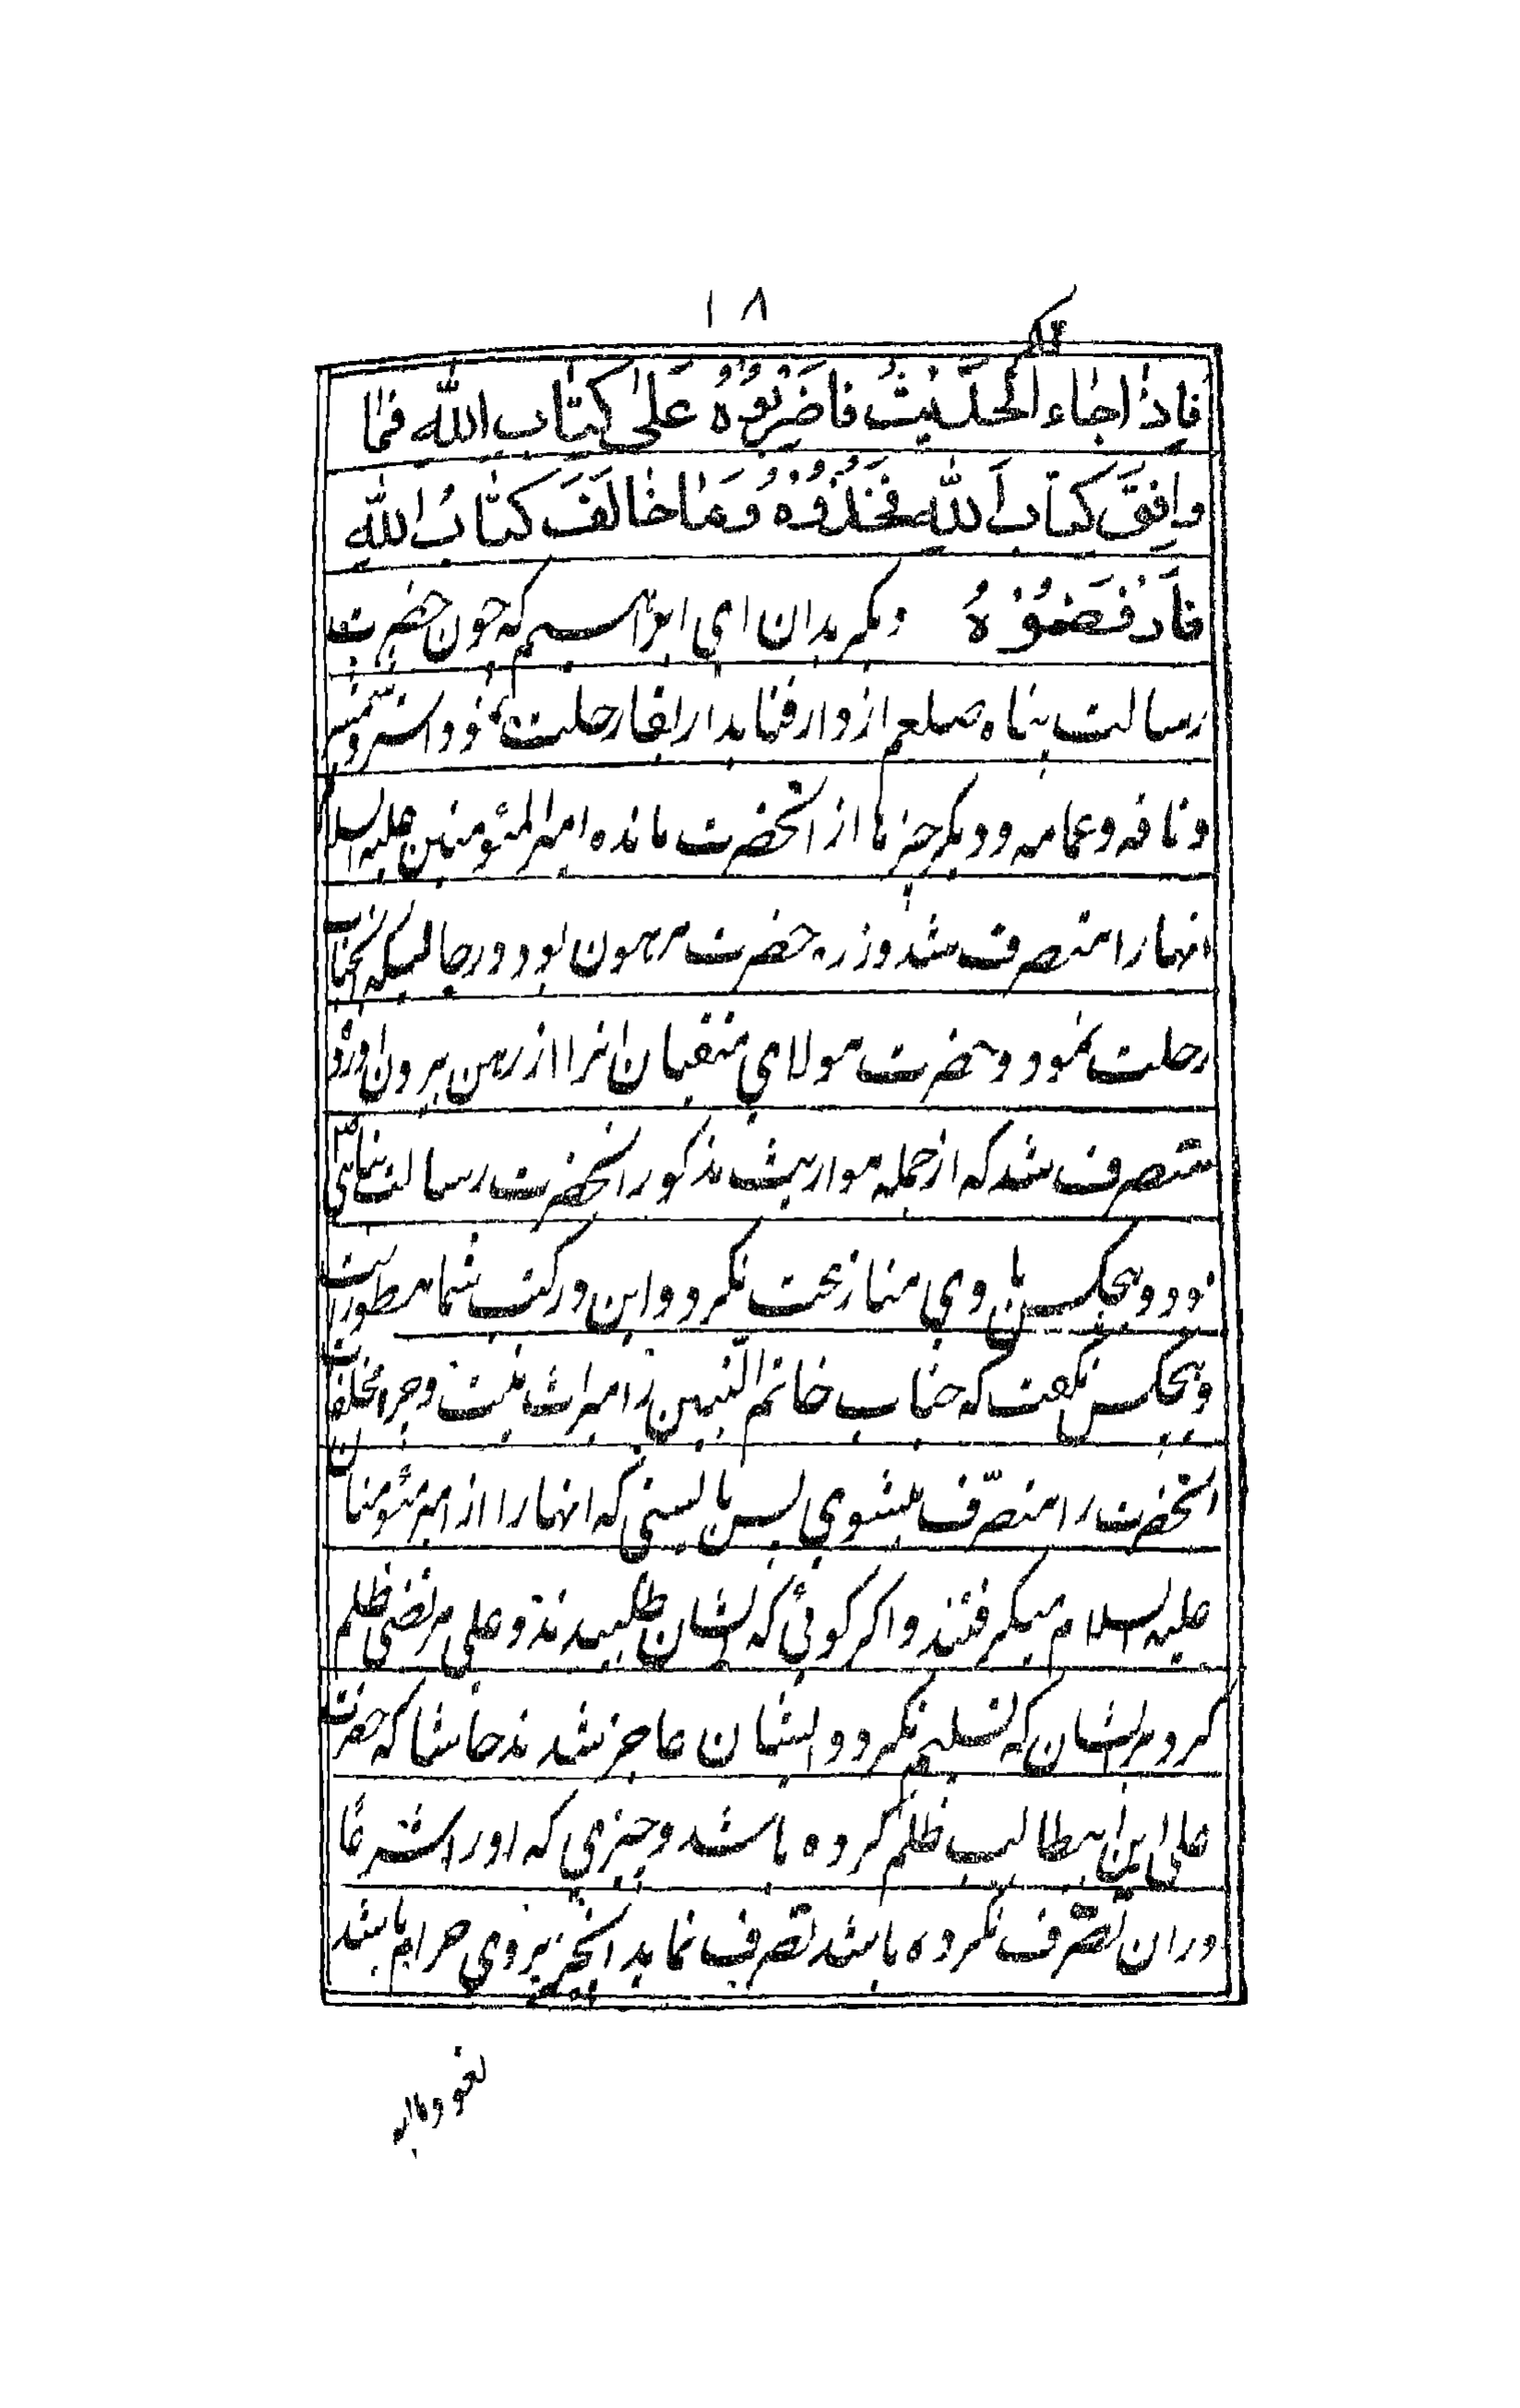 ۱۸
کم
فَاِذٰا جٰاءَ الحَدیثُ فَاضْرِبُوْهُ عَلىٰ کِتٰابِ اللّٰهِ فمٰا
وافِقَ کتابَ اللّٰهِ فَخُذُوْهُ وَمٰا خٰالَفَ کتٰابُ اللّٰهِ
فَارْفَضُوْهُ دیکر بدان ای ابراهیم که چون حضرت
رسالت پناه صلعم از دار فنا بدار بقا رحلت نمود استر و شمشیر
و ناقه و عمامه و دیکر چیزها از انحضرت مانده امیرالمئومنین علیه السلا
انها را متصرف شد و زره حضرت مرهون بود در حالیکه انجناب
رحلت نمود و حضرت مولای متقیان انرا از رهن بیرون اورد
متصرف شد که از جمله مواریث مذکور انحضرت رسالت پناهی
بود و هیچکس با وی منازعت نکرد و این در کتب شما مسطور است
و هیچکس نکفت که جناب خاتم النّبیین را میراث نیست و چرا مخلفات
انحضرت را متصرّف میشوی پس بایستی که انها را از امیر مئومنان
علیه السلام میکرفتند و اکر کوئی که ایشان طلبیدند و علی مرتضی ظلم
کرد برایشان که تسلیم نکرد و ایشان عاجز شدند حاشا که حضرت
علی ابن ابیطالب ظلم کرده باشد و چیزی که او را شرعًا
در ان تصرف نکرده باشد تصرف نماید انچیز بروی حرام باشد
نعوذ بالله